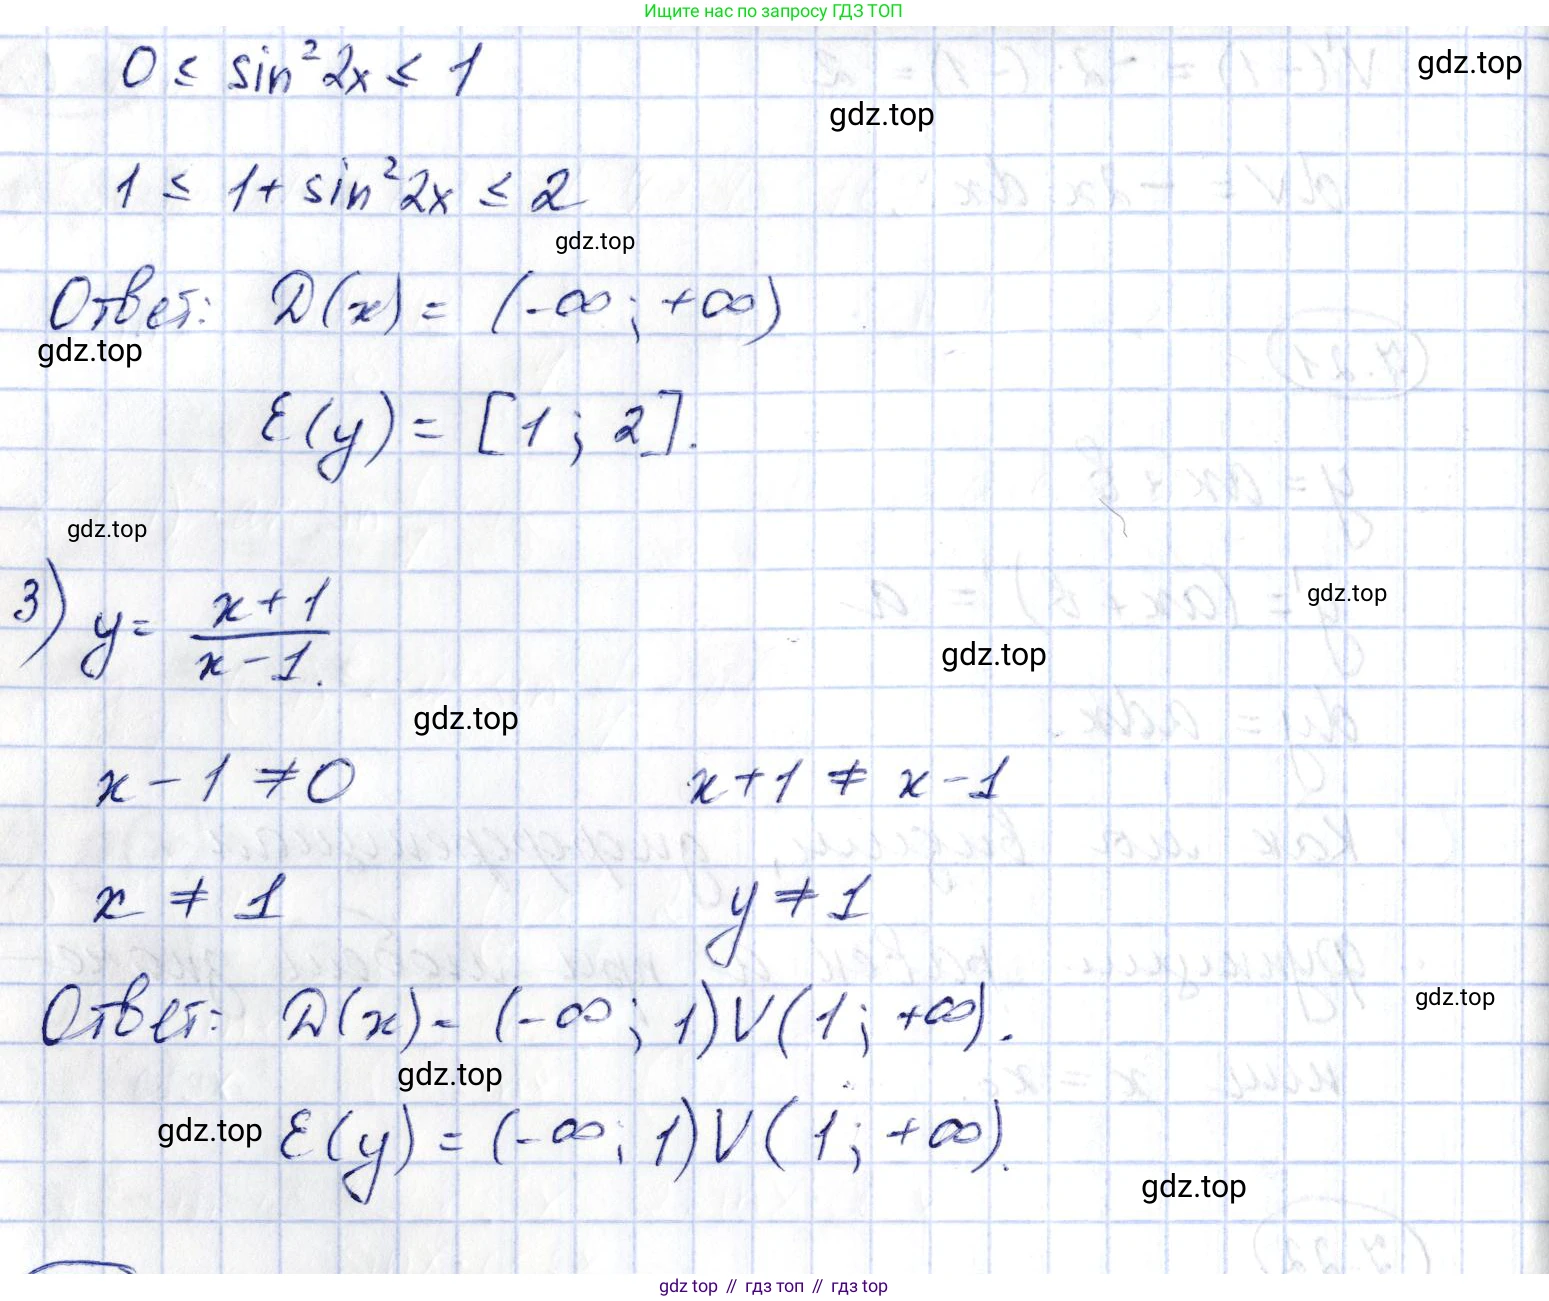 Ищите нас по запросу ГДЗ ТОП
0 ≤ sin² 2x ≤ 1
gdz.top
gdz.top
1 ≤ 1 + sin² 2x ≤ 2
gdz.top
Ответ: D(x) = (-∞; +∞)
gdz.top
E(y) = [1; 2].
gdz.top
3) y = (x+1)/(x-1).
gdz.top
gdz.top
gdz.top
x - 1 ≠ 0    x + 1 ≠ x - 1
x ≠ 1    y ≠ 1
Ответ: D(x) = (-∞; 1) V (1; +∞).
gdz.top
gdz.top
gdz.top E(y) = (-∞; 1) V (1; +∞).
gdz.top
gdz top // гдз топ // гдз top